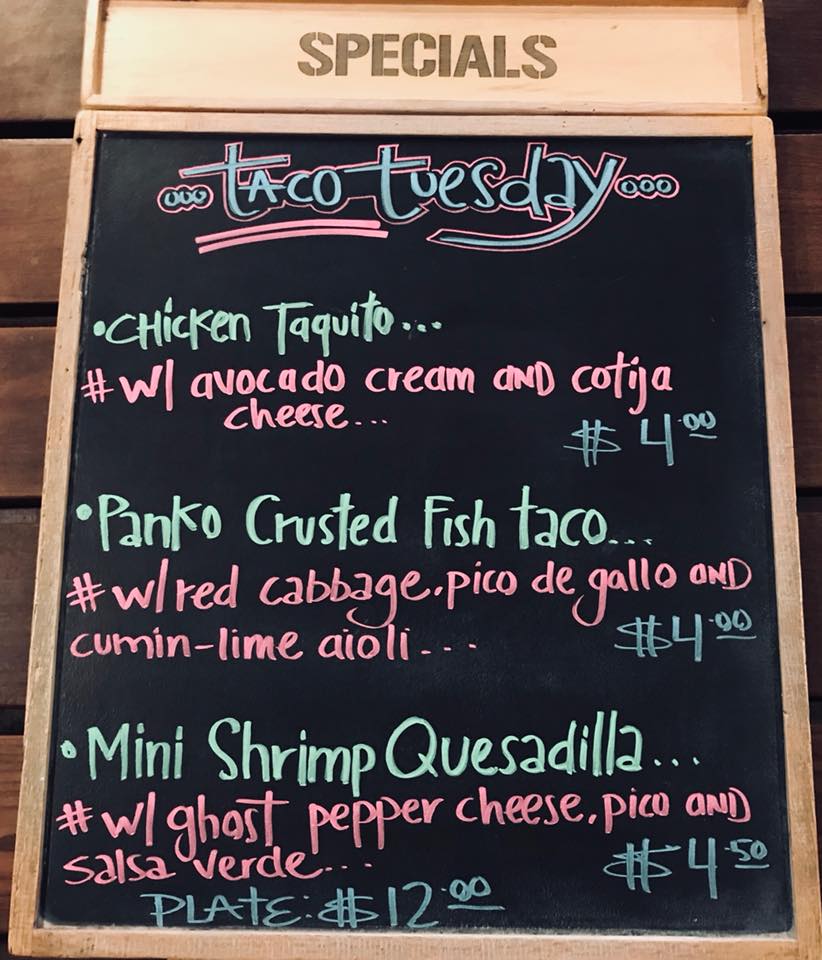 SPECIALS
ooo taco tuesday ooo
• Chicken Taquito...
# w/ avocado cream AND cotija
cheese...
$ 4.00
• Panko Crusted Fish taco...
# w/ red cabbage, pico de gallo AND
cumin-lime aioli...
$ 4.00
• Mini Shrimp Quesadilla...
# w/ ghost pepper cheese, pico AND
salsa verde...
$ 4.50
PLATE: $12.00